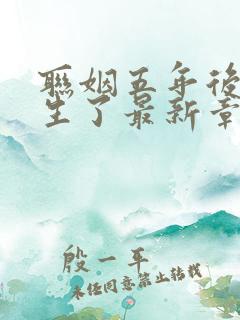 聯姻五年後
生了最新章
殷一平
未经同意禁止转载